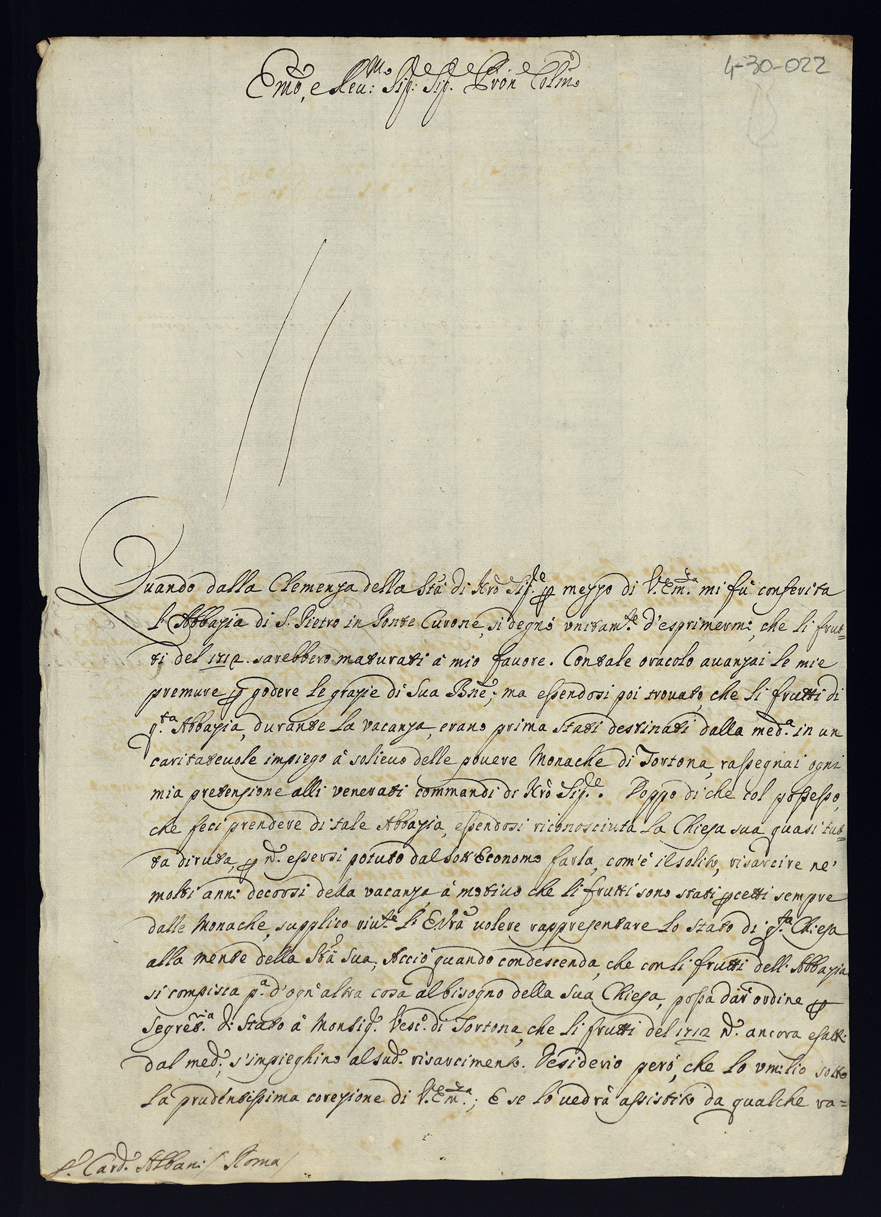 4-30-022
Emo, e Reu:mo Sig:re Sig:re Pron Colmo
Quando dalla Clemenza della Stà di Nro Sig.re p mezzo di V. Em.za mi fù conferita
l'Abbazia di S. Pietro in Ponte Curone, si degnò vnitam.te d'esprimermi, che li frut=
ti del 1712. sarebbero maturati à mio fauore. Con tale oracolo auanzai le mie
premure p godere le grazie di Sua Bne; ma essendosi poi trouato, che li frutti di
q.ta Abbazia, durante la vacanza, erano prima stati destinati dalla med.a in un
caritateuole impiego à solieuo delle pouere Monache di Tortona, rassegnai ogni
mia pretensione alli venerati commandi di Nrò Sig.re. Doppo di che col possesso,
che feci prendere di tale Abbazia, essendosi riconosciuta la Chiesa sua quasi tut=
ta diruta, p n. essersi potuto dal sott'Economo farla, com'è il solito, risarcire ne'
molti anni decorsi della vacanza, à motiuo che li frutti sono stati pcetti sempre
dalle Monache, supplico riu.te l'E Vrà volere rappresentare lo stato di q.ta Chiesa
alla mente della Stà Sua, Acciò quando condescenda, che con li frutti dell'Abbazia
si compisca p.a d'ogn'altra cosa al bisogno della sua Chiesa, possa dar ordine p
Segret.ria di Stato à Monsig.r Vesc.o di Tortona, che li frutti del 1712 n. ancora esatti
dal med.o, s'impieghino al sud.o risarcimento. Desiderio però, che lo vmilio sotto
la prudentissima corezione di V. Em.za; E se lo uedrà assistito da qualche ra=
S.r Card.e Albani / Roma /